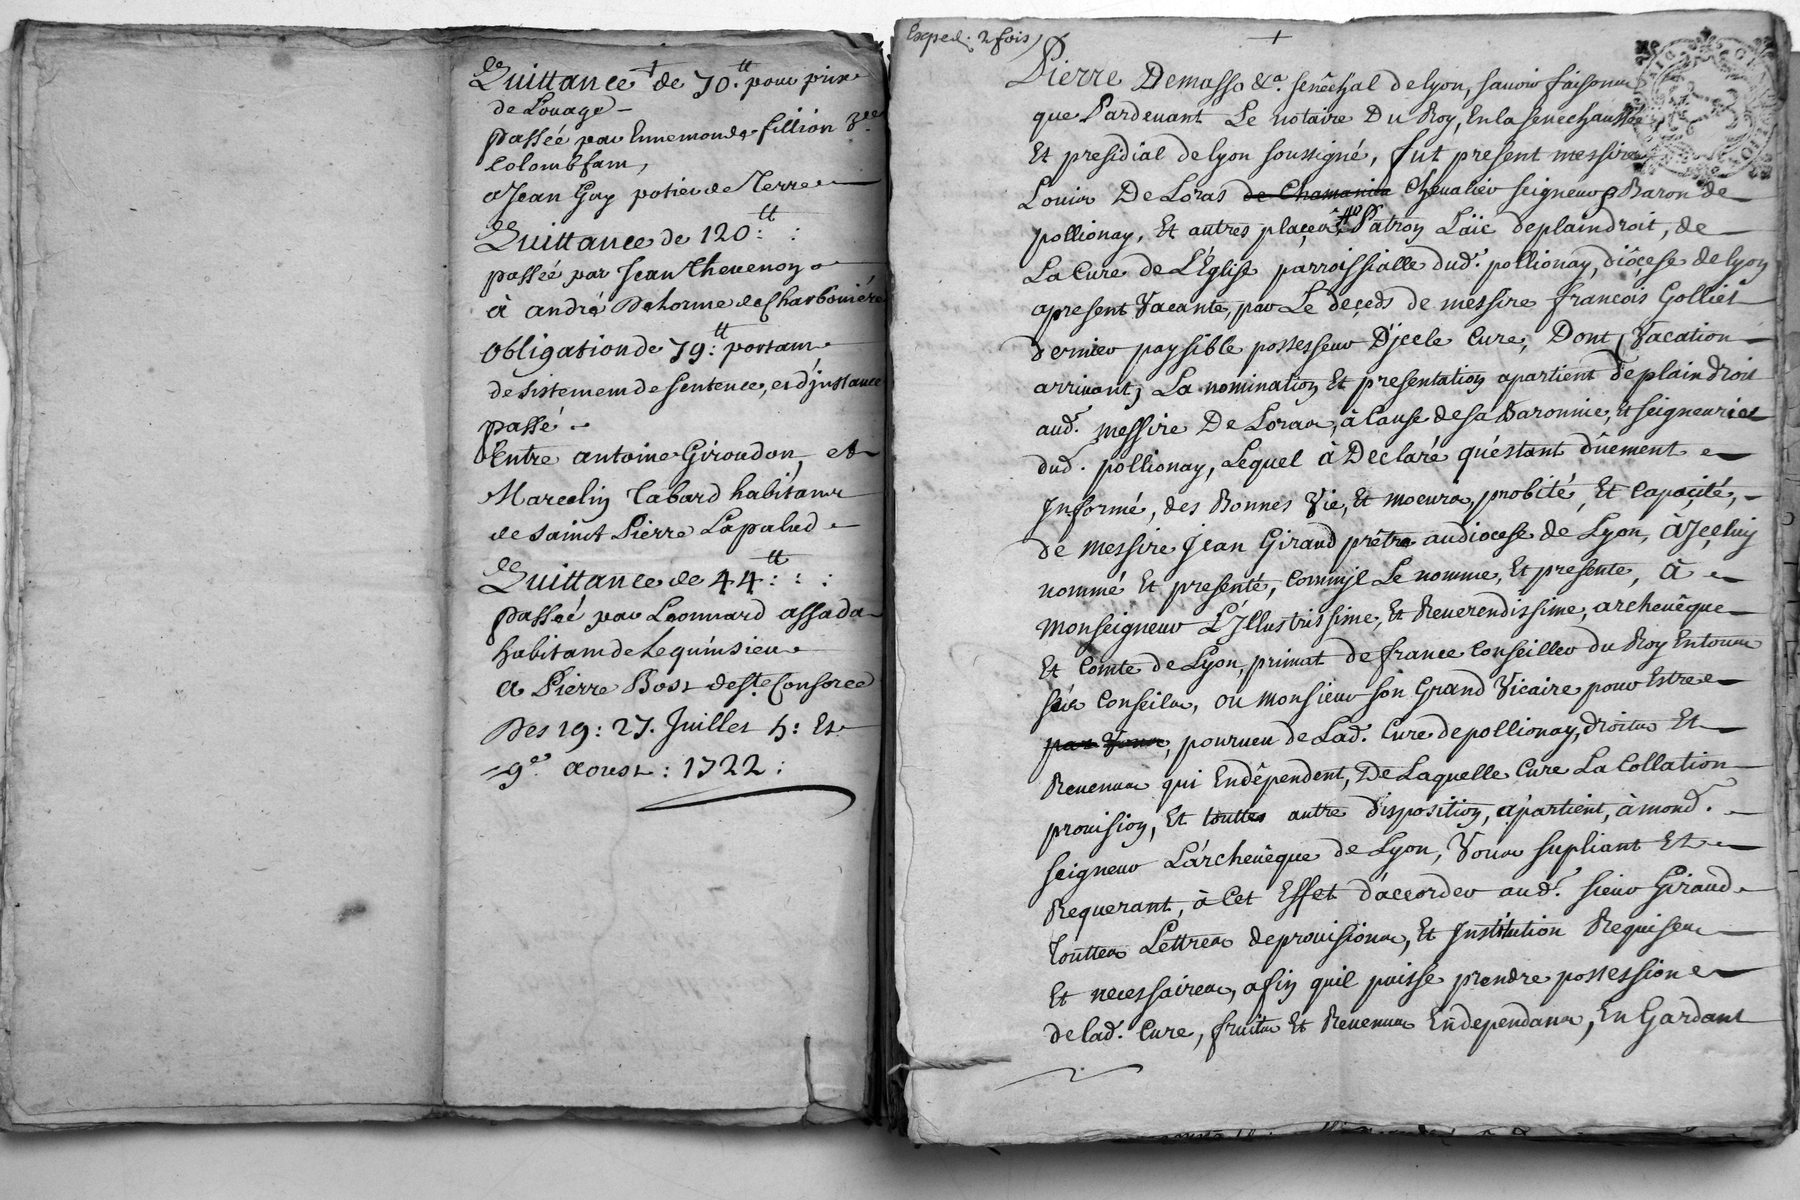 Quittance de 70.tt pour prix
de Louage
passéé par Ennemonde fillion Vve
Colombfam,
a Jean Gay potier de Terre
Quittance de 120:tt :
passéé par Jean Thevenon
à andré Delorme de Charboniére
Obligation de 79:tt portam
desistemem de sentence, et d'jnstance
passé
Entre antoine Giroudon, et
Marcelin Tabard habitans
de Saint Pierre Lapalud
Quittance de 44:tt : :
passéé par Leonnard assada
habitam de Lequinsieu
a Pierre Bost de Ste Consorce
Des 19: 27. Juillet 5: Et
9e aoust : 1722 :
Exped. 2 fois
Pierre Demasso &a. senêchal de lyon, savoir faisons
que Pardevant Le notaire Du Roy, En la senechaussée
Et presidial de lyon soussigné, fut present messire
Louis De Loras de Chamanieu Chevalier seigneur Baron de
pollionay, Et autres plaçes, Patron Laïc de plain droit, de
La Cure de L'Église parroissialle dud. pollionay, diôçese de lyon
apresent Vacante, par Le deçeds de messire françois Gollier
dernier paysible possesseur D'jcelle Cure, Dont Vacation
arrivant, La nomination Et presentation apartient de plain droit
aud. messire De Loras, à Cause de sa Baronnie, Et seigneuries
dud. pollionay, Lequel à Declaré qu'éstant dûement
Jnformé, des Bonnes Vie, Et moeurs, probité, Et Capaçité,
de messire Jean Giraud prêtre au diocese de Lyon, à Jçeluy
nommé Et presenté, Comm'jl Le nomme, Et presente, à
Monseigneur L'Jllustrissime, Et Reverendissime, archevêque
Et Comte de Lyon, primat de france Conseiller du Roy En tous
ses Conseils, ou monsieur son Grand Vicaire pour Estre
par Vous, pourveu de Lad. Cure de pollionay, droits Et
Revenus qui En dêpendent, De Laquelle Cure La Collation
provision, Et touttes autre disposition, apartient, à mond.
seigneur L'archevêque de Lyon, Vous supliant Et
Requerant, à Cet Effet d'accorder aud. sieur Giraud
touttes Lettres de provisions, Et Jnstitution Requises
Et necessaires, afin quil puisse prendre possession
de lad. Cure, fruits Et Revenus En dependans, En Gardant